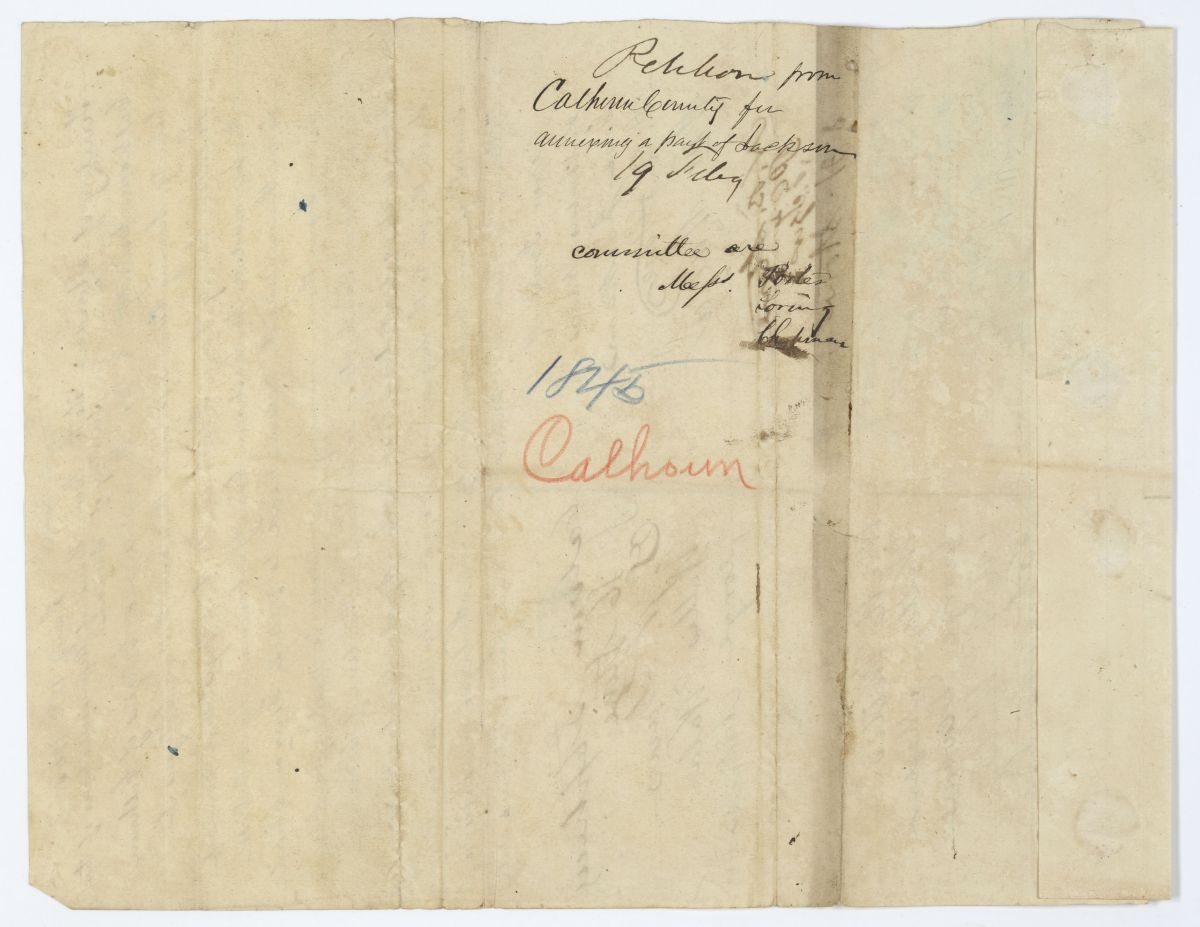 Petition from
Calhoun County for
annexing a part of Jackson
19 Feby
committee are
Messs. Porter
Loring
Chapman
1845
Calhoun